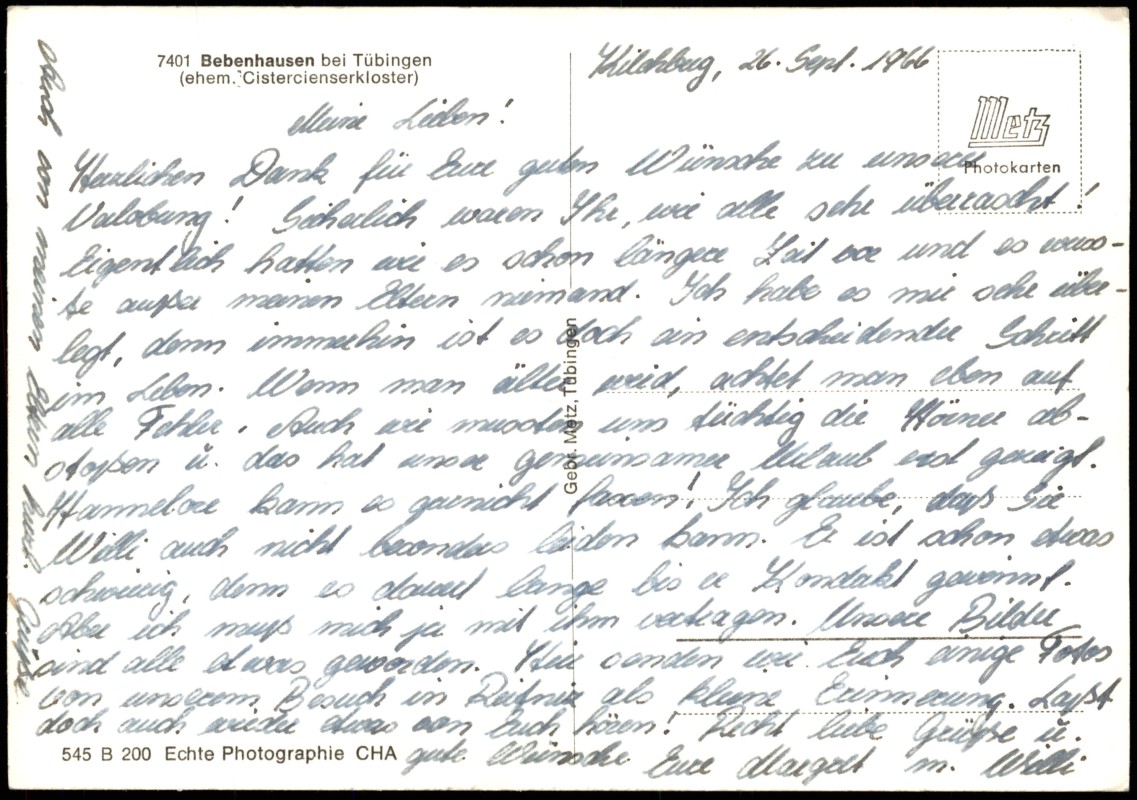 7401 Bebenhausen bei Tübingen
(ehem. Cistercienserkloster)
Kilchberg, 26. Sept. 1966
Metz
Photokarten
Meine Lieben!
Herzlichen Dank für Eure guten Wünsche zu unserer
Verlobung! Sicherlich waren Ihr, wie alle sehr überrascht!
Eigentlich hatten wir es schon längere Zeit vor und es wuss-
te außer meinen Eltern niemand. Ich habe es mir sehr über-
legt, denn immerhin ist es doch ein entscheidender Schritt
im Leben. Wenn man älter wird, achtet man eben auf
alle Fehler. Auch wir mussten uns tüchtig die Hörner ab-
stoßen u. das hat unser gemeinsamer Urlaub erst gezeigt.
Hannelore kann es garnicht fassen! Ich glaube, daß Sie
Willi auch nicht besonders leiden kann. Er ist schon etwas
schwierig, denn es dauert lange bis er Kondakt gewinnt.
Aber ich muß mich ja mit ihm vertragen. Unsere Bilder
sind alle etwas geworden. Hier senden wir Euch einige Fotos
von unserem Besuch in als kleine Erinnerung. Laßt
doch auch wieder etwas von Euch hören! Recht liebe Grüße u.
gute Wünsche Eure Margret m. Willi
Auch von meinen Eltern herzl. Grüße
Gebr. Metz, Tübingen
545 B 200 Echte Photographie CHA